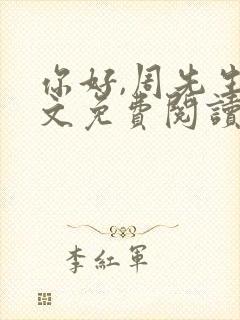 你好,周先生
文免費閱讀
李紅軍